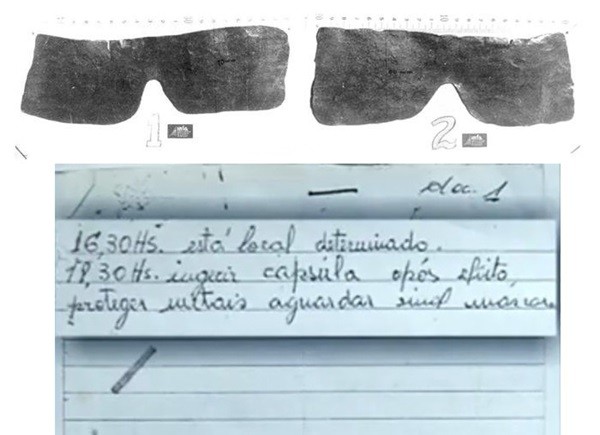 1
2
doc. 1
16,30 Hs. está local determinado.
18,30 Hs. ingerir capsúla após efeito,
proteger metais aguardar sinal mascara